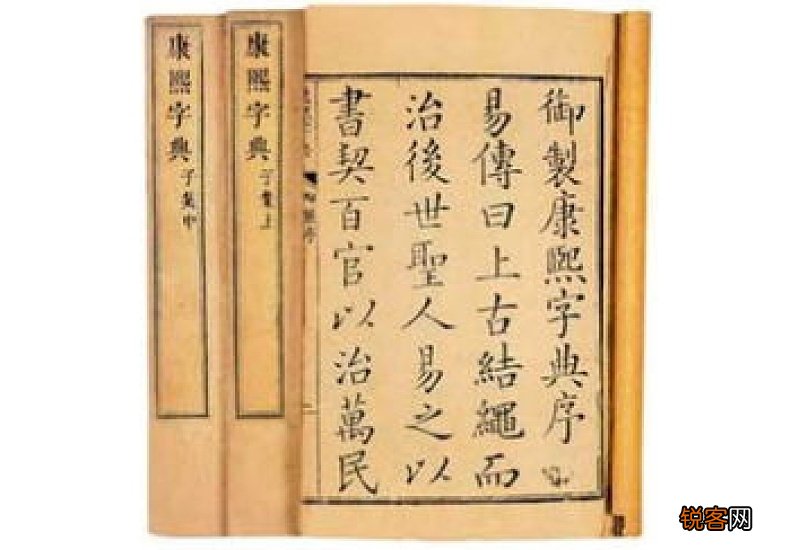 御製康熙字典序
易傳曰上古結繩而
治後世聖人易之以
書契百官以治萬民
康熙字典 子集上
康熙字典 子集中
锐客网